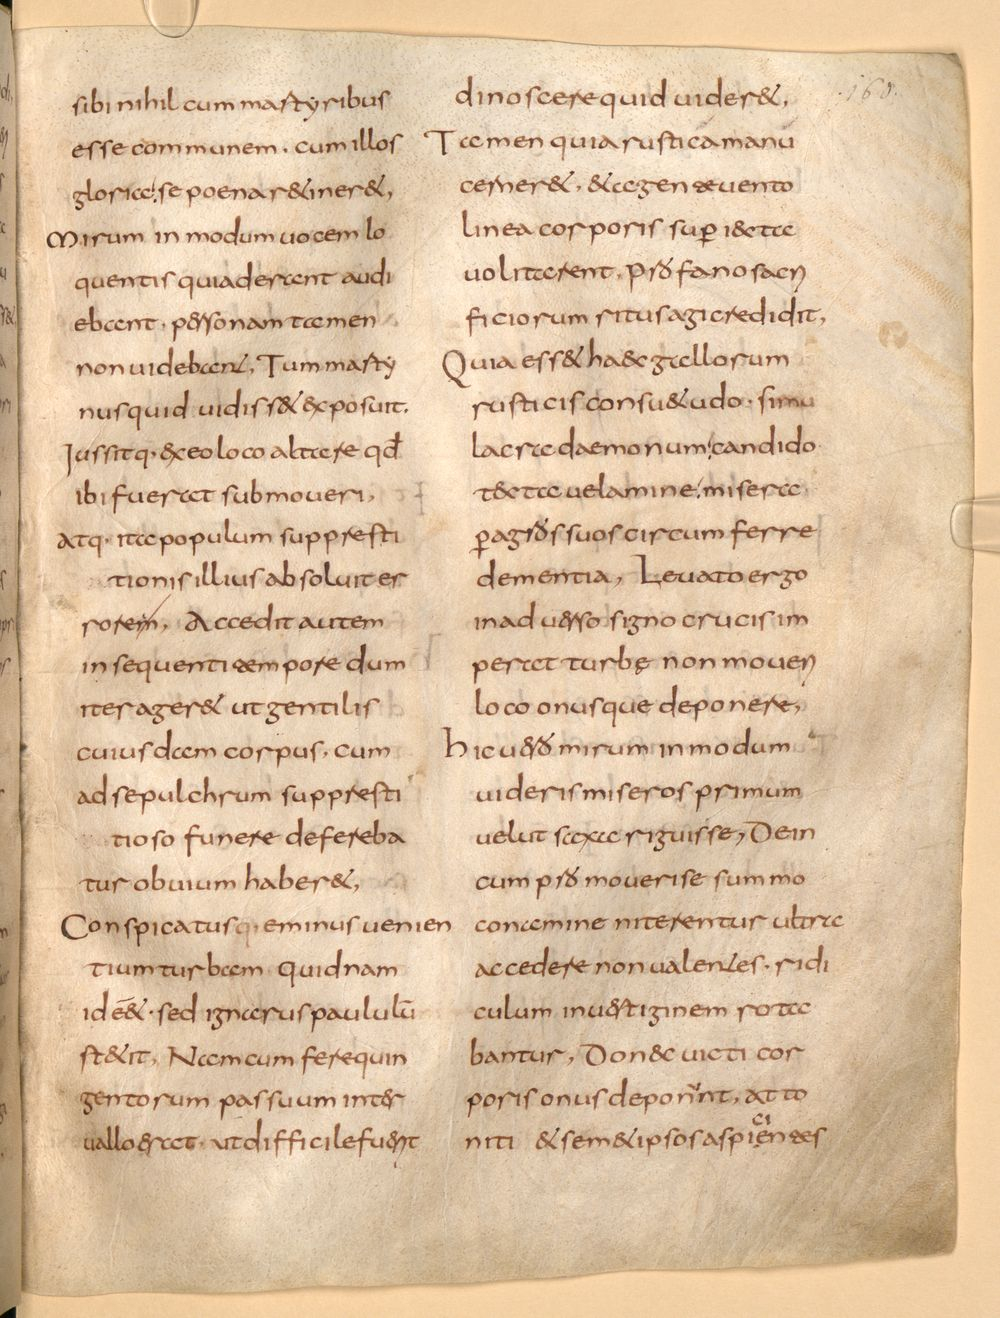 160.
sibi nihil cum martyribus
esse communem · cum illos
gloria; se poena r&iner&,
Mirum in modum uocem lo
quentis quiaderant audi
ebant · personam tamen
non uidebant, Tum marty
nus quid uidiss& exposuit.
Iussitq· & ex eo loco altare qđ
ibi fuerat submoueri,
Atq· ita populum suppresti
tionis illius absoluit er
rorem, Accedit autem
insequenti tempore dum
iter ager& ut gentilis
cuiusdam corpus, cum
ad sepulchrum suppresti
tioso funere defereba
tur obuium haber&,
Conspicatusq· eminus uenien
tium turbam quidnam
id eēt · sed ignarus paululū
st&it, Nam cum fere quin
gentorum passuum inter
uallo erat · ut difficile fuerit
dinoscere quid uider&,
Tamen quia rusticam anu
cerner&, & agente uento
lintea corporis sup̱ iecta
uolitarent, profano sacri
ficiorum ritus agi credidit,
Quia ess& haec gallorum
rusticis consu&udo · simu
lacra daemonum; candido
tecta uelamine; misera
p̱ agros suos circum ferre
dementia, Leuato ergo
in aduerso signo crucis im
perat turbę non moueri
loco onusque deponere,
hic uero mirum in modum
uideris miseros primum
uelut saxa riguisse, Dein
cum promouerise summo
conamine niterentur ultra
accedere non ualentes · ridi
culum in uertiginem rota
bantur, Donec uicti cor
poris onus deponunt, atto
niti & sem&ipsos aspicientes